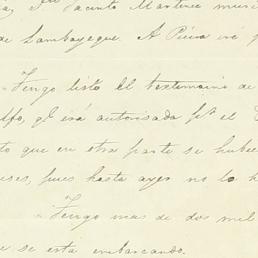 Jacinto Martinez
de Lambayeque. A Piura iré
Tengo listo el testimonio de
qe irá autorisada pr el
to que en otra parte se hubie
eses, pues hasta ayer no lo h
Tengo mas de dos mil
e se está embarcando.